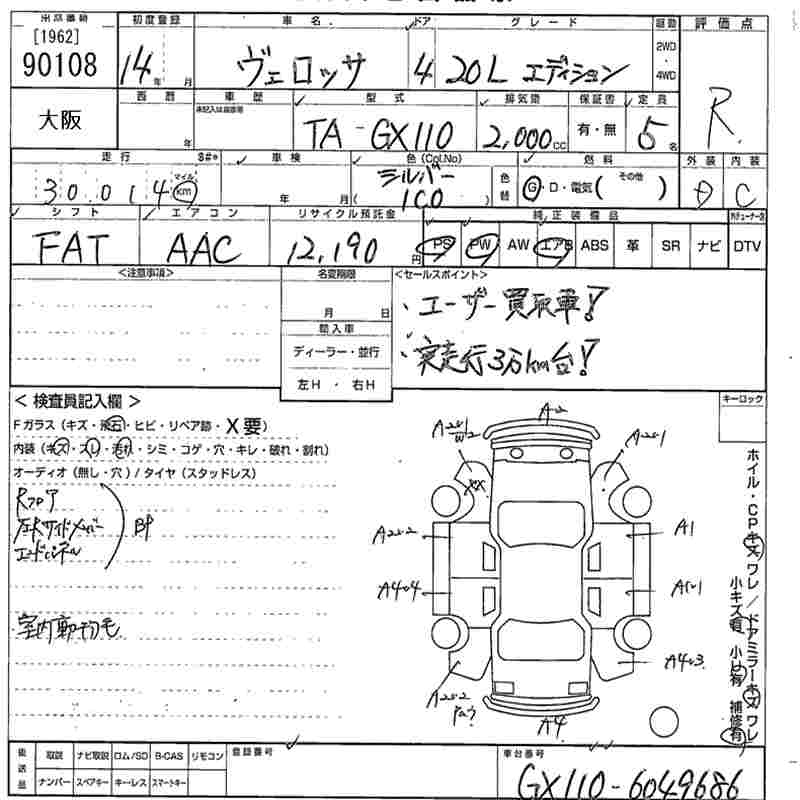 出品番号 初度登録 車名 ドア グレード 駆動 評価点
[1962]
90108 14年 月 ヴェロッサ 4 20L エディション 2WD・4WD R
大阪 西暦 年 車歴 未記入は自家用 型式 TA-GX110 排気量 2,000cc 保証書 有・無 定員 5名
走行 30,014 マイル km 車検 年 月 色(Col.No) シルバー 1C0 色替 燃料 G・D・電気( その他 ) 外装 D 内装 C
シフト エアコン リサイクル預託金 純正装備品
FAT AAC 12,190円 PS PW AW エアB ABS 革 SR ナビ DTV
<注意事項> 名変期限 月 日 <セールスポイント>
輸入車 ・ユーザー買取車!
ディーラー・並行 ・実走行3万km台!
左H・右H
<検査員記入欄> キーロック
Fガラス(キズ・飛石・ヒビ・リペア跡・X要)
内装(キズ・スレ・汚れ・シミ・コゲ・穴・キレ・破れ・割れ)
オーディオ(無し・穴)/タイヤ(スタッドレス)
Rフロア
エンドパネル
BP
・室内動物毛
A2
A1
A4
ホイル・CPキズワレ/ドアミラーキズワレ
小キズ有 小凹有 補修有
後送品 取説 ナビ取説 ロム/SD B-CAS リモコン 登録番号 車台番号
ナンバー スペアキー キーレス スマートキー GX110-6049686